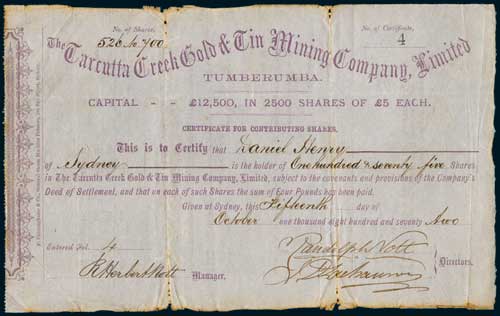 No. of Shares,
No. of Certificate,
526 to 700
4
The Tarcutta Creek Gold & Tin Mining Company, Limited
TUMBERUMBA.
CAPITAL - - £12,500, IN 2500 SHARES OF £5 EACH.
CERTIFICATE FOR CONTRIBUTING SHARES.
This is to Certify that Daniel Henry
of Sydney is the holder of One hundred & seventy five Shares
in The Tarcutta Creek Gold & Tin Mining Company, Limited, subject to the covenants and provisions of the Company's
Deed of Settlement, and that on each of such Shares the sum of Four Pounds has been paid.
Given at Sydney, this Fifteenth day of
October one thousand eight hundred and seventy two
Entered Fol. 4
Randolph Nott
Directors.
R Herbert Nott Manager.